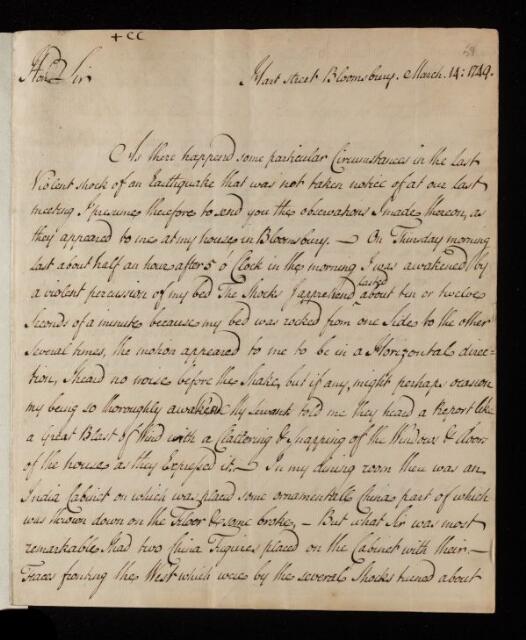 + CC
58
Hon.d Sir
Hart street Bloomsbury. March. 14: 1749.
As there happen'd some particular Circumstances in the last
Violent shock of an Earthquake that was not taken notice of at our last
meeting I presume therefore to send you the observations I made thereon, as
they appeared to me at my house in Bloomsbury. — On Thursday morning
last about half an hour after 5 o Clock in the morning I was awakened by
a violent percussion of my bed The Shocks I apprehend lasted about ten or twelve
seconds of a minute because my bed was rocked from one side to the other
several times, the motion appeared to me to be in a Horizontal direc=
tion, I heard no noise before the shake, but if any, might perhaps occasion
my being so thoroughly awake My servants told me they heard a Report like
a Great Blast of Wind with a Clattering & Snapping of the Windows & doors
of the house as they Express'd it. — In my dining room there was an
India Cabinet on which was placed some ornamental China part of which
was thrown down on the Floor & some broke, — But what Sir was most
remarkable I had two China Figures placed on the Cabinet with their —
Faces fronting the West which were by the several Shocks turned about